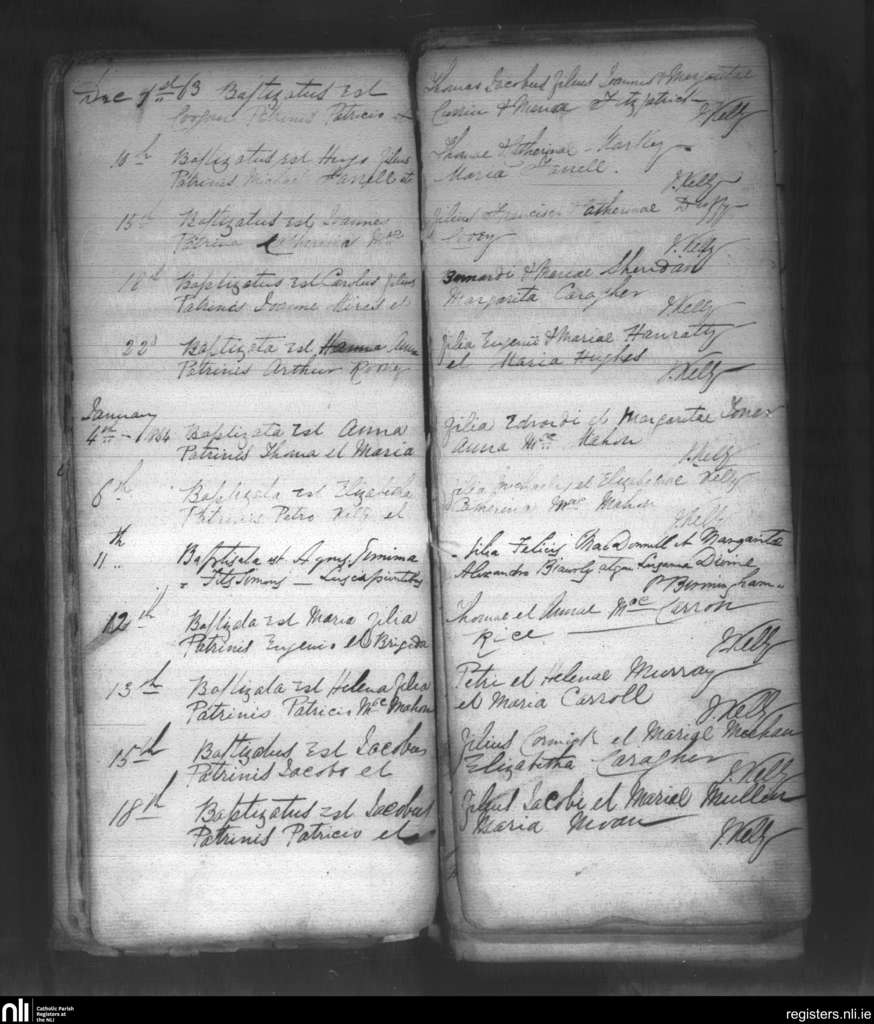 Dec 7th 63 Baptizatus est Thomas Jacobus filius Joannis & Margaritae
Patrinis Patricio & Maria Fitzpatrick
J Kelly
10th Baptizatus est Hugo filius Thomae & Catherinae Markey
Patrinis Michael Farrell et Maria Farrell.
J. Kelly
15th Baptizatus est Joannes filius Francisci & Catherinae Duffy
Catherina Mac
J. Kelly
18th Baptizatus est Carolus filius Bernardi & Mariae Sheridan
Patrinis Joanne et Margarita Caragher
J. Kelly
22d Baptizata est Hanna Anna filia Eugenii & Mariae Hanratty
Patrinis Arthur Rooney et Maria Hughes
J. Kelly
January
4th - 1864 Baptizata est Anna filia Edvardi et Margaritae Jones
Patrinis Thoma et Maria Anna Mac Mahon
J. Kelly
6th Baptizata est Elizabetha filia Michaelis et Elizabethae Kelly
Patrinis Petro Kelly et Mac Mahon
J Kelly
11th Baptizata est Agnes Jemima filia Felicis MacDonnell et Margaritae
FitzSimons - Suscipientibus Alexandro atque Eugenia Divine
P Birmingham
12th Baptizata est Maria filia Thomae et Annae Mac Carron
Patrinis Eugenio et Brigida Rice
J. Kelly
13th Baptizata est Helena filia Petri et Helenae Murray
Patrinis Patricio Mac Mahon et Maria Carroll
J. Kelly
15th Baptizatus est Jacobus filius Cormick et Mariae Meehan
Patrinis Jacobo et Elizabetha Caragher
J. Kelly
18th Baptizatus est Jacobus filius Jacobi et Mariae Mullen
Patrinis Patricio et Maria
J. Kelly
nli Catholic Parish
Registers at
the NLI
registers.nli.ie